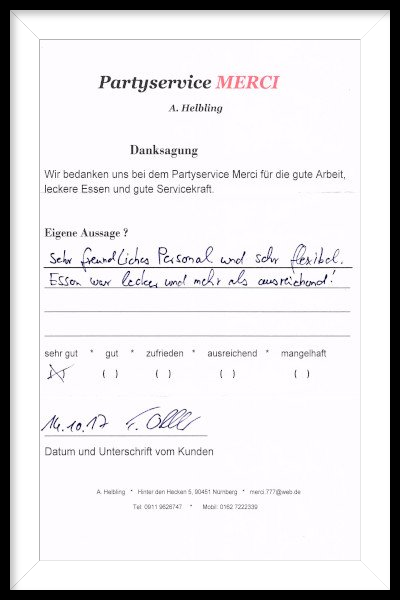 Partyservice MERCI
A. Helbling
Danksagung
Wir bedanken uns bei dem Partyservice Merci für die gute Arbeit,
leckere Essen und gute Servicekraft.
Eigene Aussage ?
Sehr freundliches Personal und sehr flexibel.
Essen war lecker und mehr als ausreichend!
sehr gut * gut * zufrieden * ausreichend * mangelhaft
( ) ( ) ( ) ( )
14.10.17
Datum und Unterschrift vom Kunden
A. Helbling * Hinter den Hecken 5, 90451 Nürnberg * merci.777@web.de
Tel: 0911 9626747 * Mobil: 0162 7222339